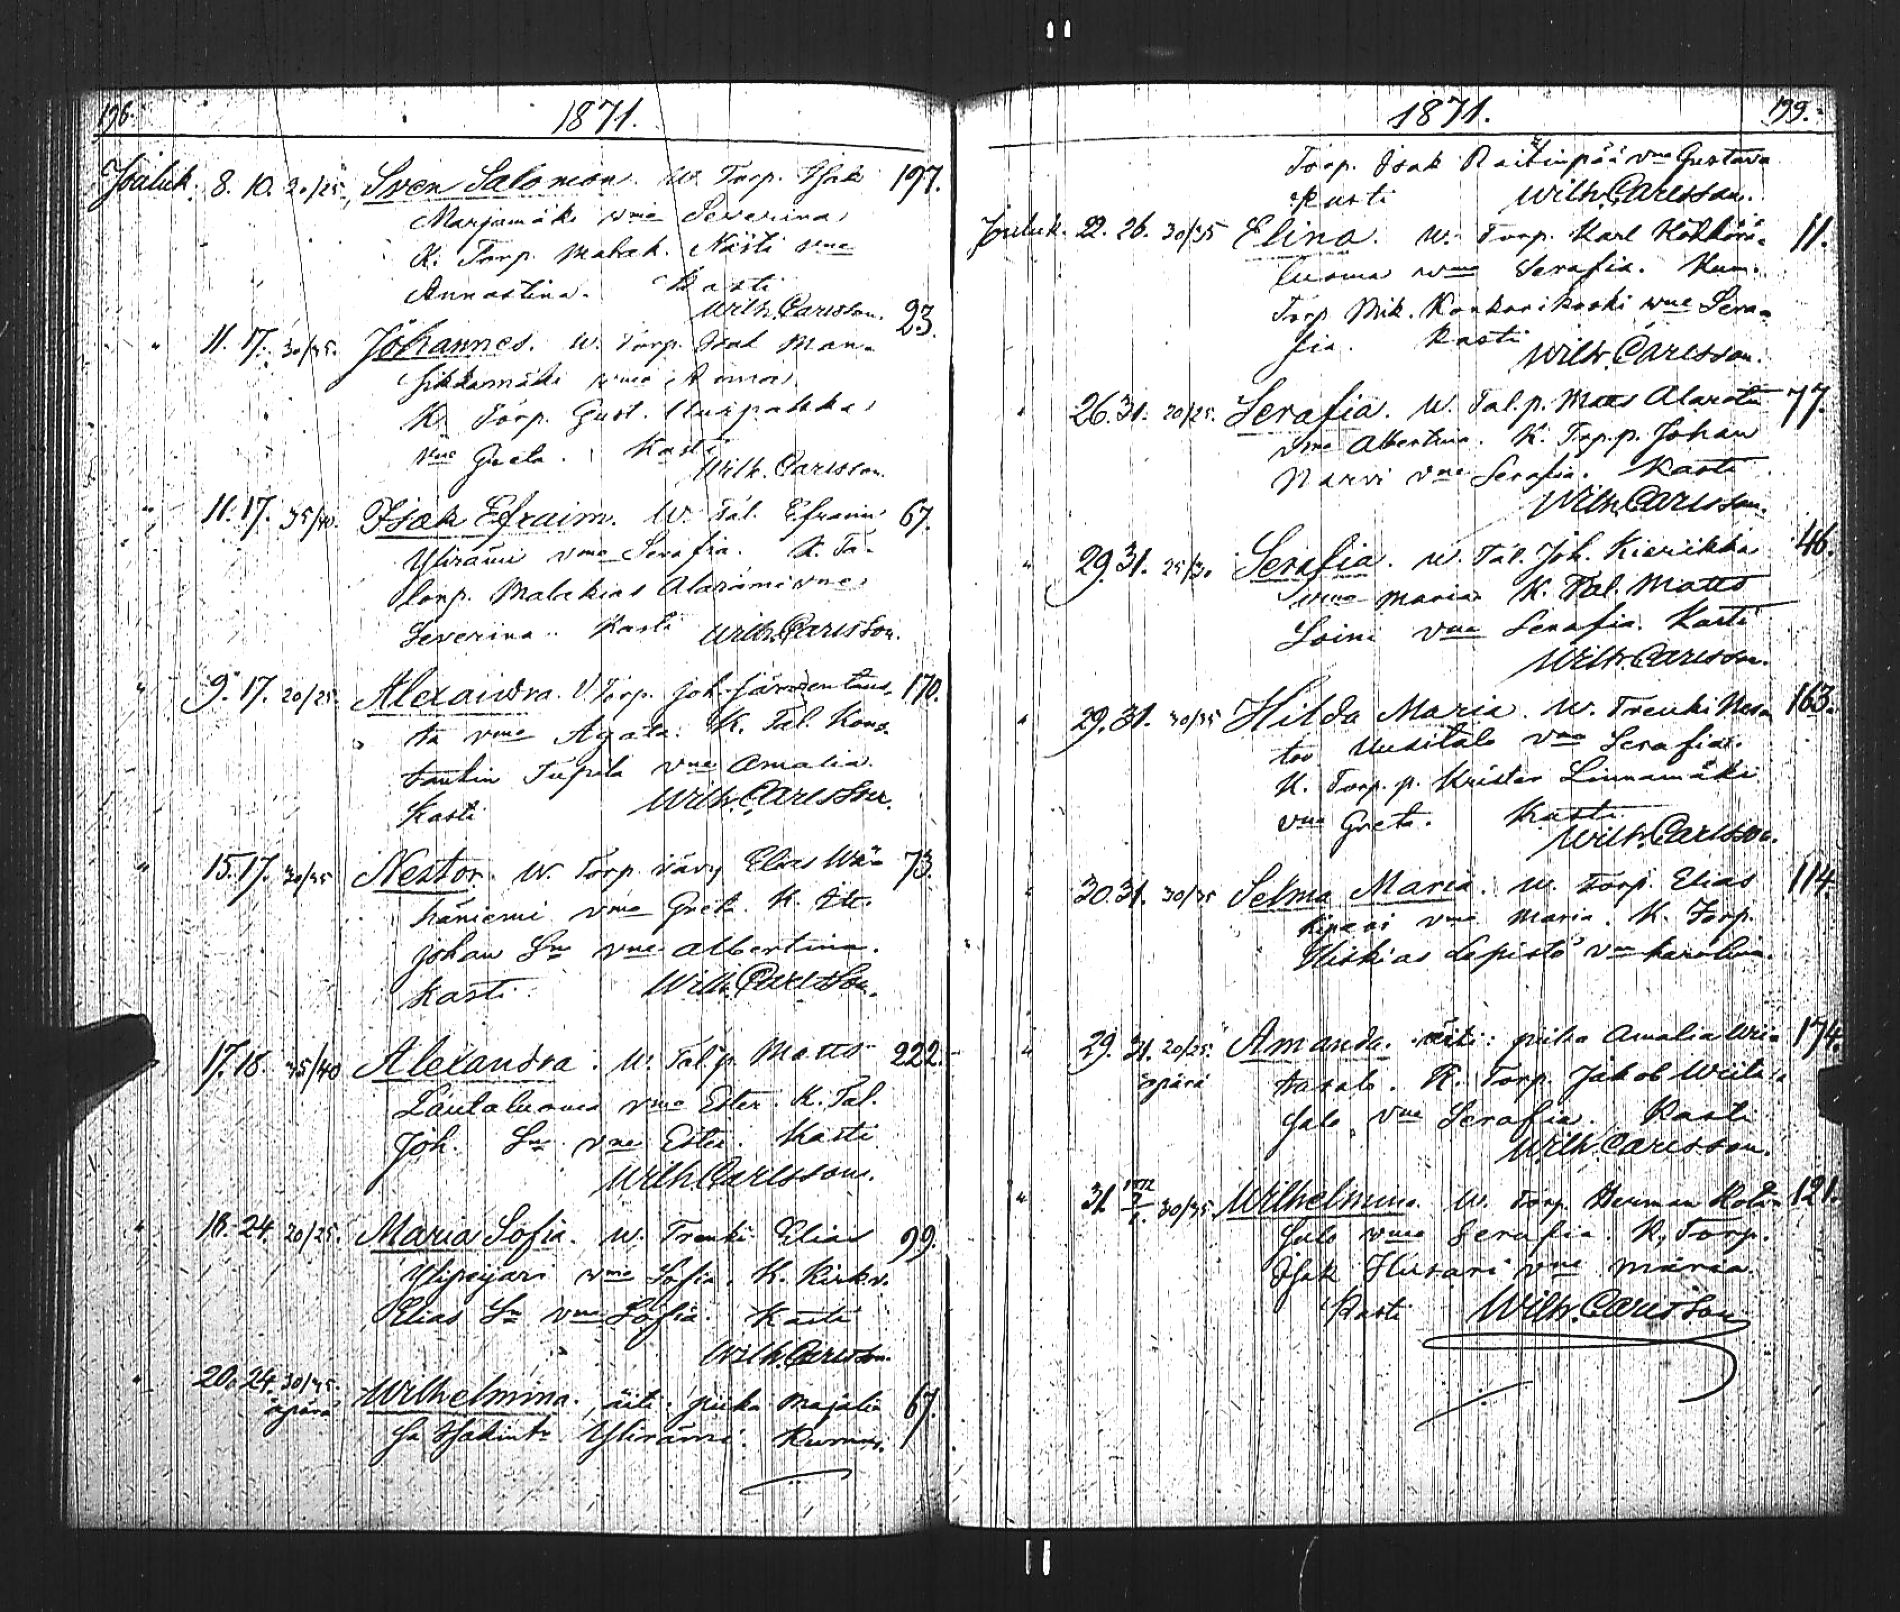 196.
1871.
Jouluk. 8. 10. 20/25. Sven Salomon. W. Torp. Isak 197.
Marjamäki vmo Severina
K. Torp. Malak. Nästi vmo
Annastina. Kasti
Wilh. Carlsson.
" 11. 17. 30/35. Johannes. W. Torp. Isak Man- 23.
sikkamäki vmo Anna
K. Torp. Gust.
vmo Greta. Kasti
Wilh. Carlsson.
" 11. 17. 35/40. Isak Efraim. W. Tal. Efraim 67.
Ylirämi vmo Serafia. K. Ta-
lonp. Malakias Alarämi vmo
Severina. Kasti Wilh. Carlsson.
" 9. 17. 20/25. Alexandra. W. Torp. Joh. Järventaus- 170.
ta vmo Agata. K. Tal. Kons-
tantin Tupela vmo Amalia.
Kasti Wilh. Carlsson.
" 15. 17. 30/35 Nestor. W. Torp. Elias Wä- 73.
häniemi vmo Greta. K.
Johan Sm vmo Albertina.
Kasti Wilh. Carlsson.
" 17. 18. 35/40 Alexandra. W. Tal.p. Matts 222.
Lautaluoma vmo Ester. K. Tal.
Joh. Sm vmo Ester. Kasti
Wilh. Carlsson.
" 18. 24. 20/25. Maria Sofia. W. Trenki Elias 99.
Ylipeijari vmo Sofia. K. Kirkv.
Elias Sm vmo Sofia. Kasti
Wilh. Carlsson.
" 20. 24. 30/35. Wilhelmina. äiti: piika Majalii- 67.
äpärä sa Isakint. Yliräme. Kumm.
1871.
199.
Torp. Isak Raitinpää vmo Gustava
Kasti Wilh. Carlsson.
Jouluk. 22. 26. 30/35 Elina. W. Torp. Karl Kokkoi- 11.
luoma vmo Serafia. Kum.
Torp. Mik. Konkarikoski vmo Sera-
fia. Kasti
Wilh. Carlsson.
" 26. 31. 20/25. Serafia. W. Tal.p. Matts Alarotu 77.
vmo Albertina. K. Trp.p. Johan
Narvi vmo Serafia. Kasti
Wilh. Carlsson.
" 29. 31. 25/30 Serafia. W. Tal. Joh. Kierikka 46.
vmo Maria K. Tal. Matts
Loine vmo Serafia. Kasti
Wilh. Carlsson.
" 29. 31. 30/35 Hilda Maria. W. Trenki Nes- 163.
tor Uusitalo vmo Serafia.
K. Torp.p. Krister Linnamäki
vmo Greta. Kasti
Wilh. Carlsson.
" 30. 31. 30/35 Selma Maria. W. Torp. Elias 114.
vmo Maria. K. Torp.
Hiskias Lepistö vmo Karolina.
" 29. 31. 20/25. Amanda. äiti: piika Amalia Wii- 174.
äpärä tasalo. K. Torp. Jakob Wiita-
salo vmo Serafia. Kasti
Wilh. Carlsson.
" 31. 30/35 Wilhelmina. W. Torp. Herman Koti- 121.
salo vmo Serafia. K. Torp.
Isak Husari vmo Maria.
Kasti Wilh. Carlsson